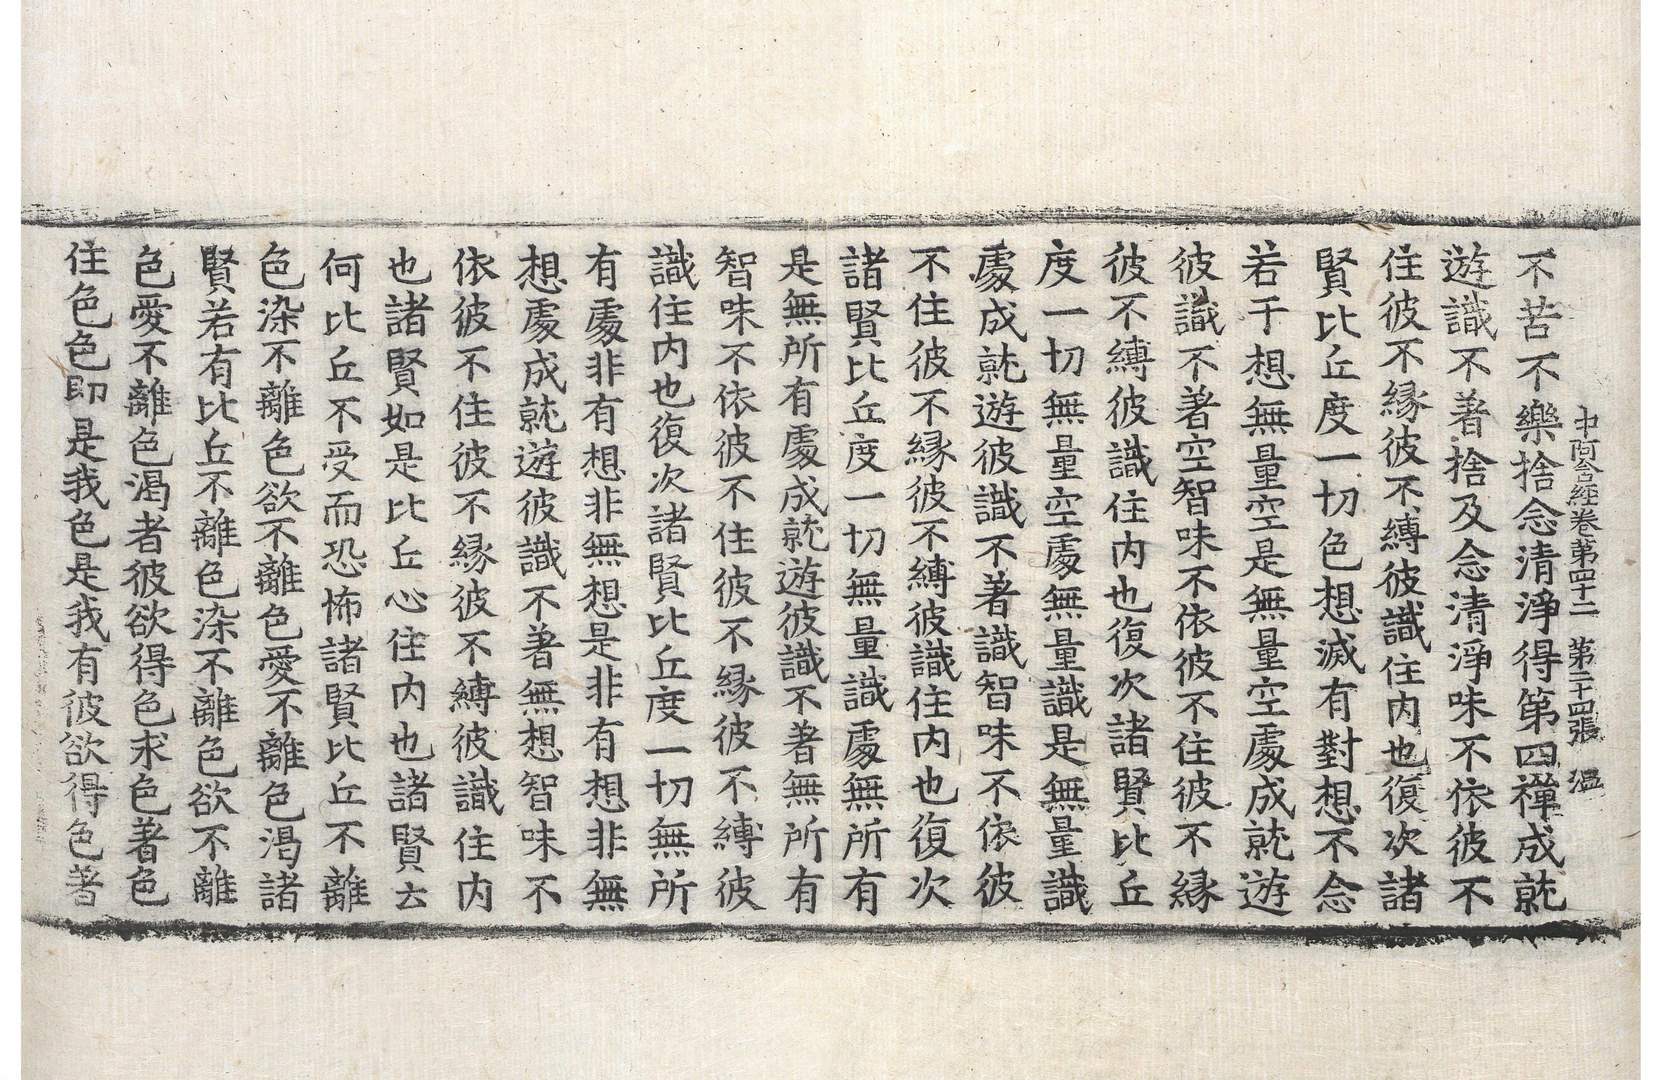 中阿含經卷第四十二 第二十四張 溫
不苦不樂捨念清淨得第四禪成就
遊識不著捨及念清淨味不依彼不
住彼不緣彼不縛彼識住內也復次諸
賢比丘度一切色想滅有對想不念
若干想無量空是無量空處成就遊
彼識不著空智味不依彼不住彼不緣
彼不縛彼識住內也復次諸賢比丘
度一切無量空處無量識是無量識
處成就遊彼識不著識智味不依彼
不住彼不緣彼不縛彼識住內也復次
諸賢比丘度一切無量識處無所有
是無所有處成就遊彼識不著無所有
智味不依彼不住彼不緣彼不縛彼
識住內也復次諸賢比丘度一切無所
有處非有想非無想是非有想非無
想處成就遊彼識不著無想智味不
依彼不住彼不緣彼不縛彼識住內
也諸賢如是比丘心住內也諸賢云
何比丘不受而恐怖諸賢比丘不離
色染不離色欲不離色愛不離色渴諸
賢若有比丘不離色染不離色欲不離
色愛不離色渴者彼欲得色求色著色
住色色即是我色是我有彼欲得色著